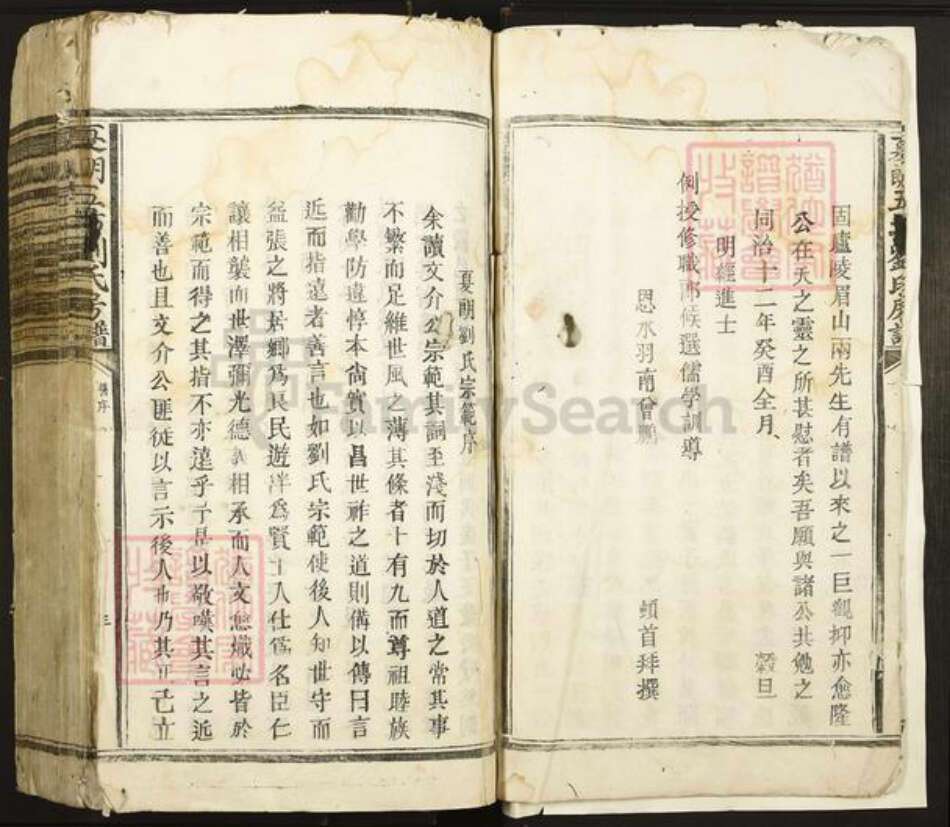 固廬陵眉山兩先生有譜以來之一巨觀抑亦愈隆
公在天之靈之所甚慰者矣吾願與諸公共勉之
同治十二年癸酉仝月 穀旦
明經進士
例授修職郎候選儒學訓導
恩水羽南曾鵬 頓首拜撰
夏朗劉氏宗範序
余讀文介公宗範其詞至淺而切於人道之常其事
不繁而足維世風之薄其條者十有九而尊祖睦族
勸學防違惇本尙實以昌世祚之道則備以傳曰言
近而指遠者善言也如劉氏宗範使後人知世守而
益張之將居鄉為良民遊泮為賢士入仕為名臣仁
讓相襲而世澤彌光德義相承而人文愈熾必皆於
宗範而得之其指不亦遠乎于是以敬嘆其言之近
而善也且文介公匪徒以言示後人也乃其正己立
劉氏房譜
舊序
FamilySearch